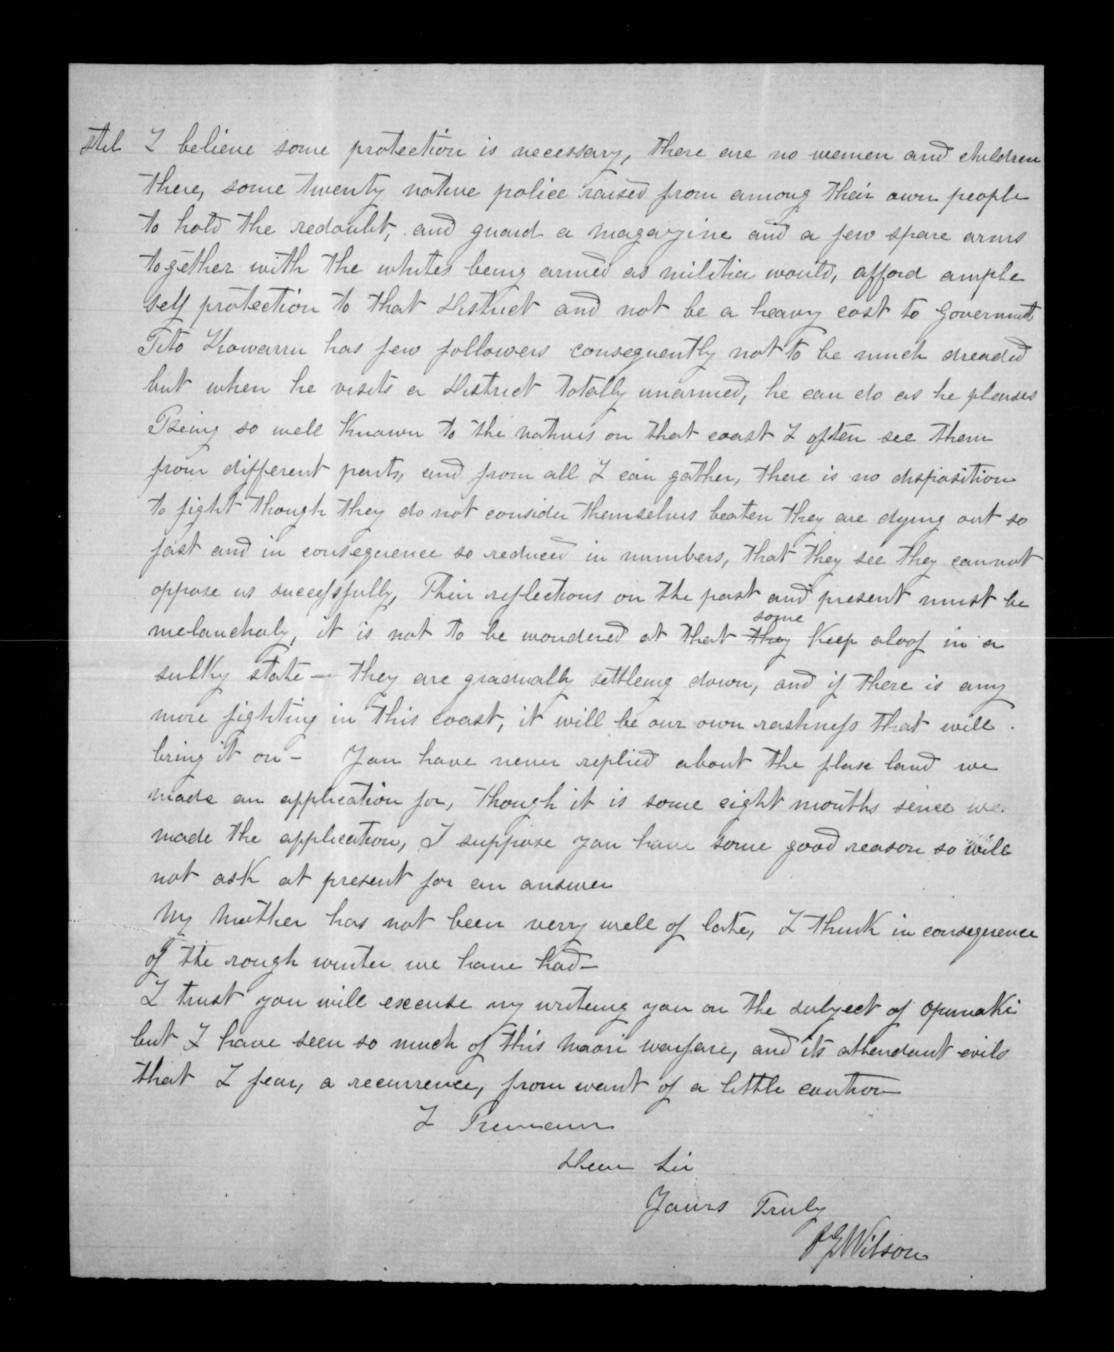 Still I believe some protection is necessary, there are no women and children
there, some twenty native police raised from among their own people
to hold the redoubt, and guard a magazine and a few spare arms
together with the whites being armed as militia would, afford ample
self protection to that District and not be a heavy cost to Governmt
Tito Kowarru has few followers consequently not to be much dreaded
but when he visits a District totally unarmed, he can do as he pleases
Being so well Known to the natives on that coast I often see them
from different parts, and from all I can gather, there is no disposition
to fight though they do not consider themselves beaten they are dying out so
fast and in consequence so reduced in numbers, that they see they cannot
oppose us successfully, Their reflections on the past and present must be
melancholy, it is not to be wondered at that some Keep aloof in a
sulky state — they are gradually settleing down, and if there is any
more fighting in this coast, it will be our own rashness that will
bring it on — You have never replied about the land we
made an application for, though it is some eight months since we
made the application, I suppose you have some good reason so will
not ask at present for an answer
My Mother has not been very well of late, I think in consequence
of the rough winter we have had —
I trust you will excuse my writeing you on the subject of Opunaki
but I have seen so much of this Maori warfare, and its attendant evils
that I fear, a recurrence, from want of a little caution
I Remain
Dear Sir
Yours Truly
Wilson